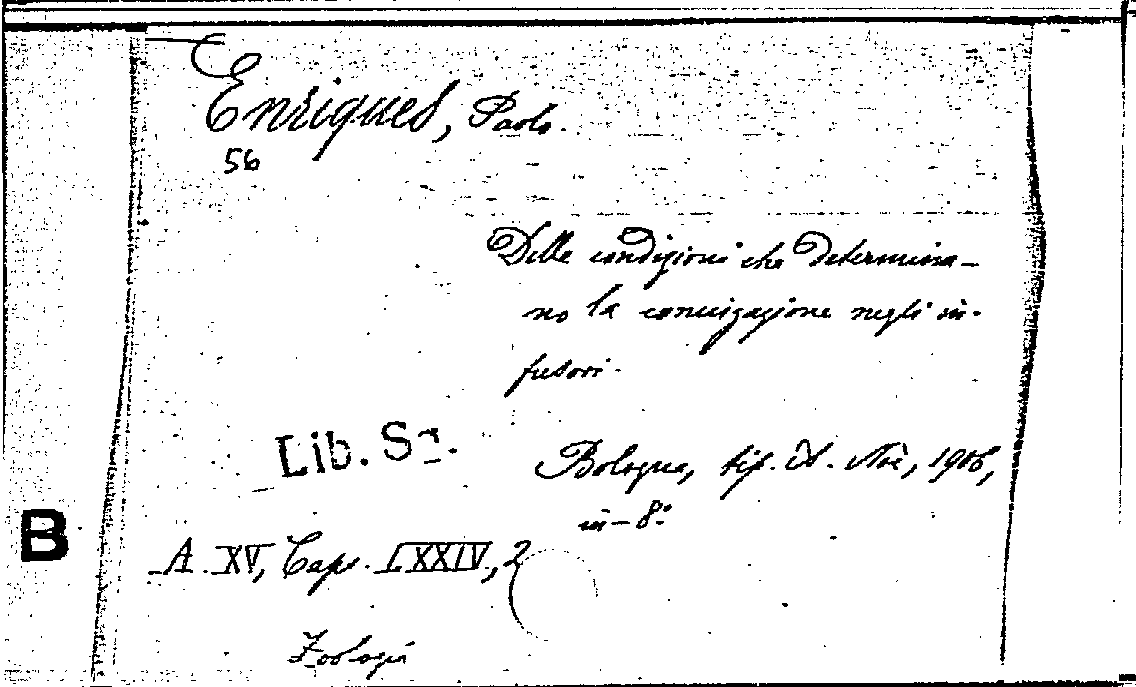 Enriques, Paolo.
56
Delle condizioni che determina-
no la coniugazione negli in-
fusori.
Lib. Sq.
Bologna, tip. A. Noè, 1906,
in-8°
B
A. XV, Caps. LXXIV, 2
Zoologia